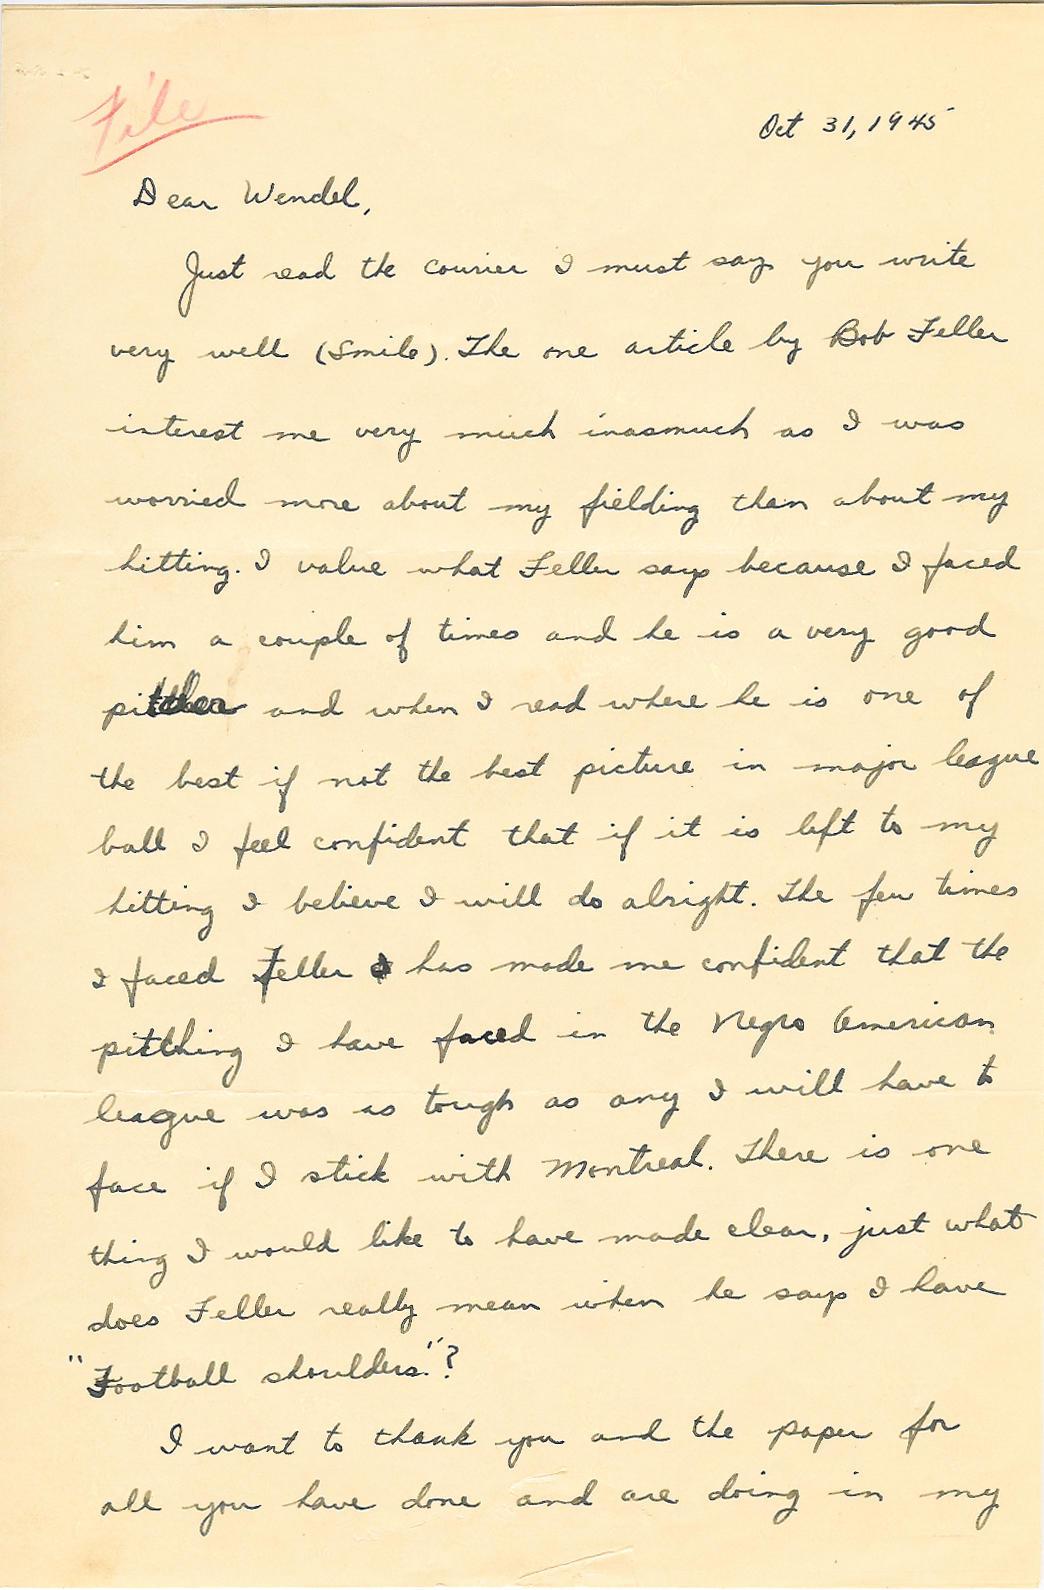 File
Oct 31, 1945
Dear Wendel,
Just read the courier I must say you write
very well (Smile). The one article by Bob Feller
interest me very much inasmuch as I was
worried more about my fielding than about my
hitting. I value what Feller says because I faced
him a couple of times and he is a very good
pitcher and when I read where he is one of
the best if not the best picture in major league
ball I feel confident that if it is left to my
hitting I believe I will do alright. The few times
I faced Feller has made me confident that the
pitching I have faced in the Negro American
league was as tough as any I will have to
face if I stick with Montreal. There is one
thing I would like to have made clear, just what
does Feller really mean when he says I have
"Football shoulders."?
I want to thank you and the paper for
all you have done and are doing in my